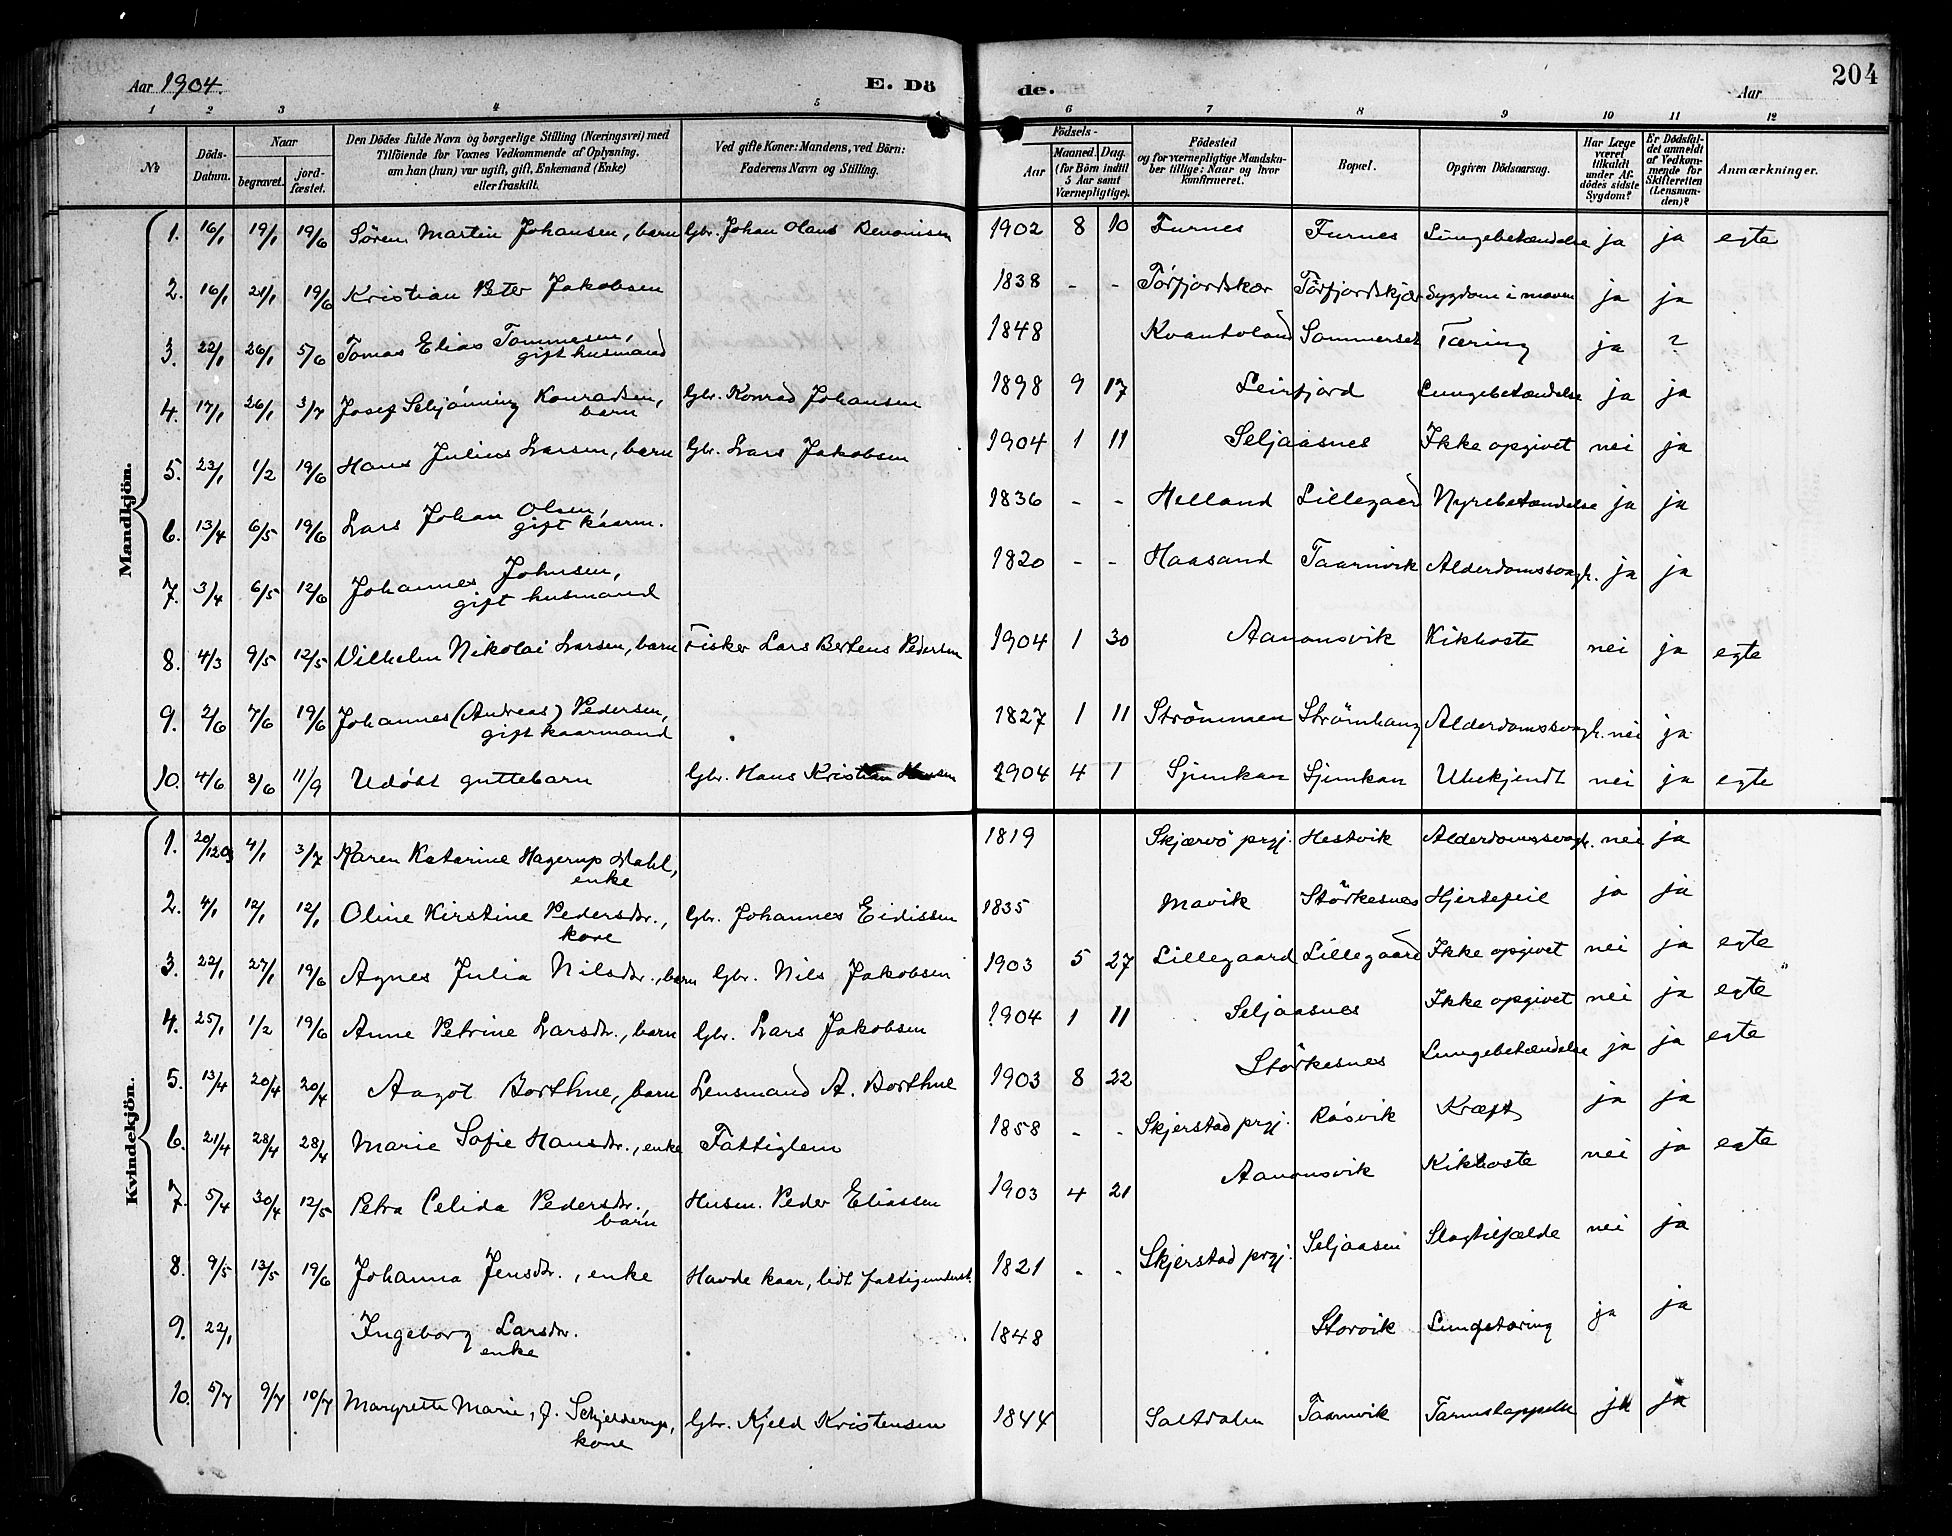 Aar 1904. E. Dö de. Aar 204
1 2 3 4 5 6 7 8 9 10 11 12
No. Döds-Datum. Naar begravet. jord-fæstet. Den Dödes fulde Navn og borgerlige Stilling (Næringsvei) med Tilföiende for Voxnes Vedkommende af Oplysning. om han (hun) var ugift, gift, Enkemand (Enke) eller fraskilt. Ved gifte Koner: Mandens, ved Börn: Faderens Navn og Stilling. Födsels- Aar Maaned. Dag. (for Börn indtil 5 Aar samt Værnepligtige). Födested og for værnepligtige Mandskaber tillige: Naar og hvor konfirmeret. Bopæl. Opgiven Dödsaarsag. Har Læge været tilkaldt under Afdödes sidste Sygdom? Er Dödsfaldet anmeldt af Vedkommende for Skifteretten (Lensmanden)? Anmærkninger.
Mandkjön.
1. 16/1 19/1 19/6 Søren Martin Johansen, barn Gbr. Johan Olaus 1902 8 10 Furnes Furnes Lungebetændelse ja ja egte
2. 16/1 21/1 19/6 Kristian Peter Jakobsen 1838 - - Törfjordskær Törfjordskjær Sygdom i maven ja ja
3. 22/1 26/1 5/6 Tomas Elias Tommesen, gift husmand 1848 Kvantoland Sommerset Tæring ja ?
4. 17/1 26/1 3/7 Josef Schjönning Konradsen, barn Gbr. Konrad Johansen 1898 9 17 Leirfjord Lungebetændelse ja ja
5. 23/1 1/2 19/6 Hans Julius Larsen, barn Gbr. Lars Jakobsen 1904 1 11 Seljaasnes Ikke opgivet nei ja
6. 13/4 6/5 19/6 Lars Johan Olsen, gift kaarm. 1836 - - Helland Lillegaard Nyrebetændelse ja ja
7. 3/4 6/5 12/6 Johannes Johnsen, gift husmand 1820 - - Haasand Taarnvik Alderdomssvagh. ja ja
8. 4/3 9/5 12/5 Vilhelm Nikolai Larsen, barn Fisker Lars Bertens Pedersen 1904 1 30 Aanonsvik Kikhoste nei ja egte
9. 2/6 7/6 19/6 Johannes (Andreas) Pedersen, gift kaarmand 1827 1 11 Strömmen Strömhaug Alderdomssvagh. nei ja
10. 4/6 8/6 11/9 Udöbt guttebarn Gbr. Hans Kristian Hansen 1904 4 1 Sjunkan Sjunkan Ubekjendt nei ja egte
Kvindekjön.
1. 20/12 03 4/1 3/7 Karen Katarine Hagerup Dahl, enke 1819 Skjærvö prgj. Hestvik Alderdomssvagh. nei ja
2. 4/1 12/1 12/1 Oline Kirstine Pedersdr., kone Gbr. Johannes Eidissen 1835 Mavik Störkesnes Hjertefeil ja ja
3. 22/1 27/1 19/6 Agnes Julia Nilsdr., barn Gbr. Nils Jakobsen 1903 5 27 Lillegaard Lillegaard Ikke opgivet nei ja egte
4. 25/1 1/2 19/6 Anne Petrine Larsdr., barn Gbr. Lars Jakobsen 1904 1 11 Seljaasnes Ikke opgivet nei ja egte
5. 13/4 20/4 20/4 Aagot Borthne, barn Lensmand A. Borthne 1903 8 22 Störkesnes Lungebetændelse ja ja egte
6. 21/4 28/4 28/4 Marie Sofie Hansdr., enke Fattiglem 1858 - - Skjerstad prgj. Rösvik Kræft ja ja
7. 5/4 30/4 12/5 Petra Celida Pedersdr., barn Husm. Peder Eliassen 1903 4 21 Aanonsvik Kikhoste nei ja egte
8. 9/5 13/5 19/6 Johanna Jensdr., enke Havde kaar, lidt fattigunderst. 1821 - - Skjerstad prgj. Seljaasen Slagtilfælde nei ja
9. 22/1 Ingeborg Larsdr. enke 1848 Storvik Lungetæring ja ja
10. 5/7 9/7 10/7 Margrette Marie, f. Schjelderup, kone Gbr. Kjeld Kristensen 1844 Saltdalen Taarnvik ja ja